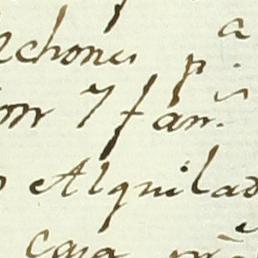 lchones p.ª
on 7 fan.s
o Alquilad
casa